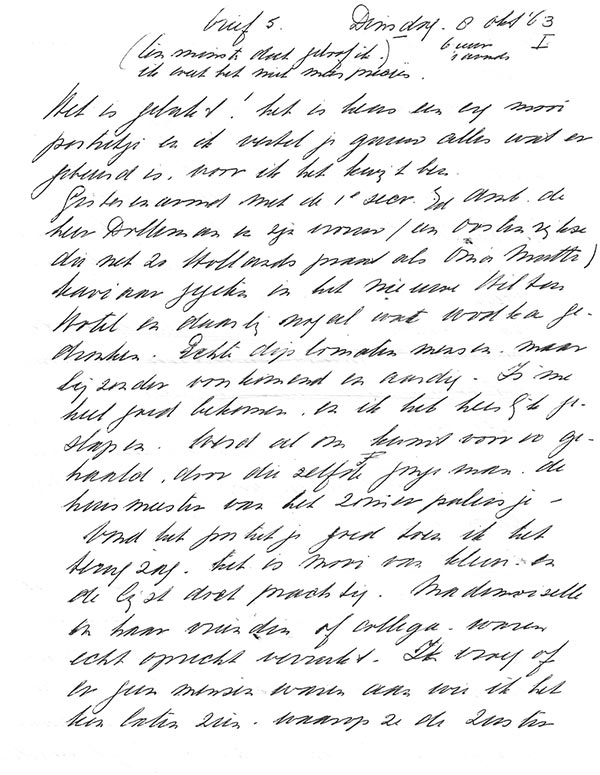 brief 5. Dinsdag. 8 okt '63
(ten minste dat geloof ik.) 6 uur I
ik weet het niet meer precies. 's avonds
Het is gelukt! het is heus een erg mooi
portretje en ik vertel je gauw alles wat er
gebeurd is, voor ik het kwijt ben.
Gisterenavond met de 1e secr. Ned Amb. de
heer Dolleman en zijn vrouw / een Oostenrijkse
die net zo Hollands praat als Omis Mutti)
kaviaar gegeten in het nieuwe Hilton
Hotel en daarbij nogal wat wodka ge-
dronken. Echte diplomaten mensen. maar
bijzonder voorkomend en aardig. Is me
heel goed bekomen. en ik heb heerlijk ge-
slapen. Werd al om voor 10 ge-
haald, door die zelfde jonge man. de
huismeester van het zomer paleisje –
Vond het portretje goed toen ik het
terug zag. het is mooi van kleur. en
de lijst doet prachtig. Mademoiselle
en haar vriendin of collega. waren
echt oprecht verrukt. Ik vroeg of
er geen mensen waren aan wie ik het
kon laten zien. waarop ze de zuster